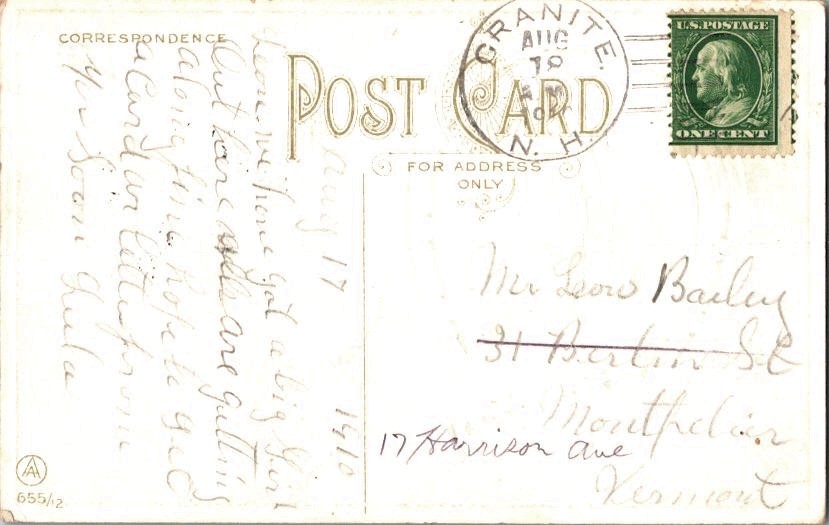 CORRESPONDENCE
POST CARD
FOR ADDRESS
ONLY
GRANITE.
AUG
18
M
10
N. H.
U.S. POSTAGE
ONE CENT
Aug 17 1910
Leon we have got a big Girl
out here we are getting
along fine hope to get
a Card or letter from
yo Soon Lula
Mr Leon Bailey
31 Berlin St
17 Harrison ave
Montpelier
Vermont
AA
655/2